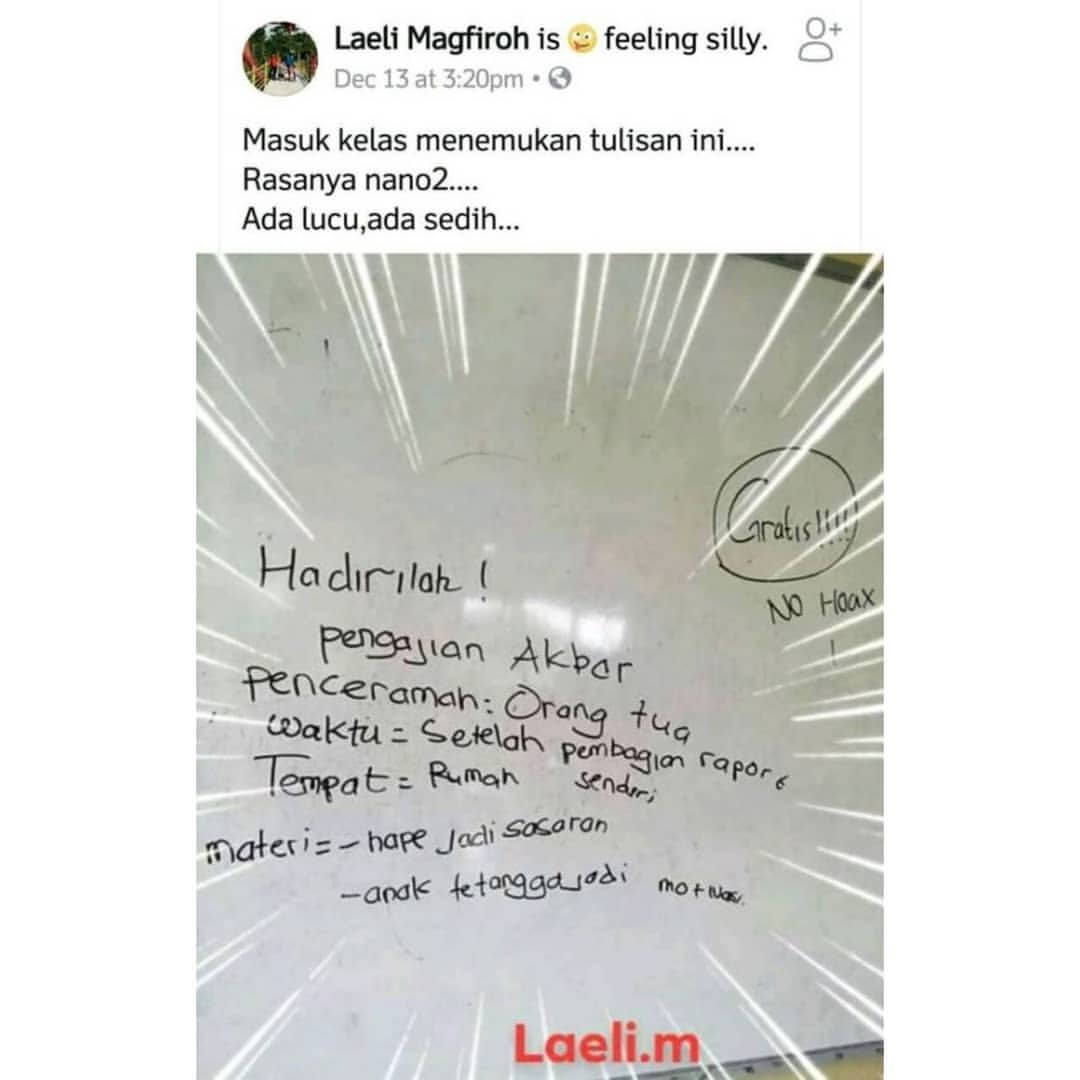 Laeli Magfiroh is feeling silly.
Dec 13 at 3:20pm
Masuk kelas menemukan tulisan ini....
Rasanya nano2....
Ada lucu,ada sedih...
Gratis!!!!
NO Hoax
!
Hadirilah !
pengajian Akbar
penceramah: Orang tua
waktu = Setelah pembagian raport
Tempat = Rumah senderi
materi = - hape jadi sasaran
- anak tetangga jadi motivasi.
Laeli.m